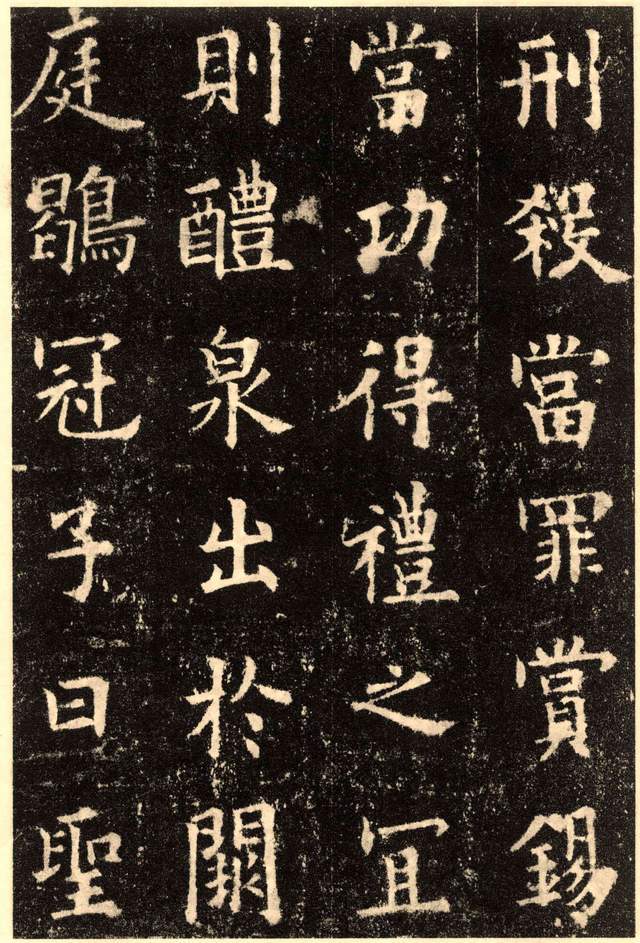 刑殺當罪賞錫
當功得禮之冝
則醴泉出於闕
庭鶡冠子曰聖